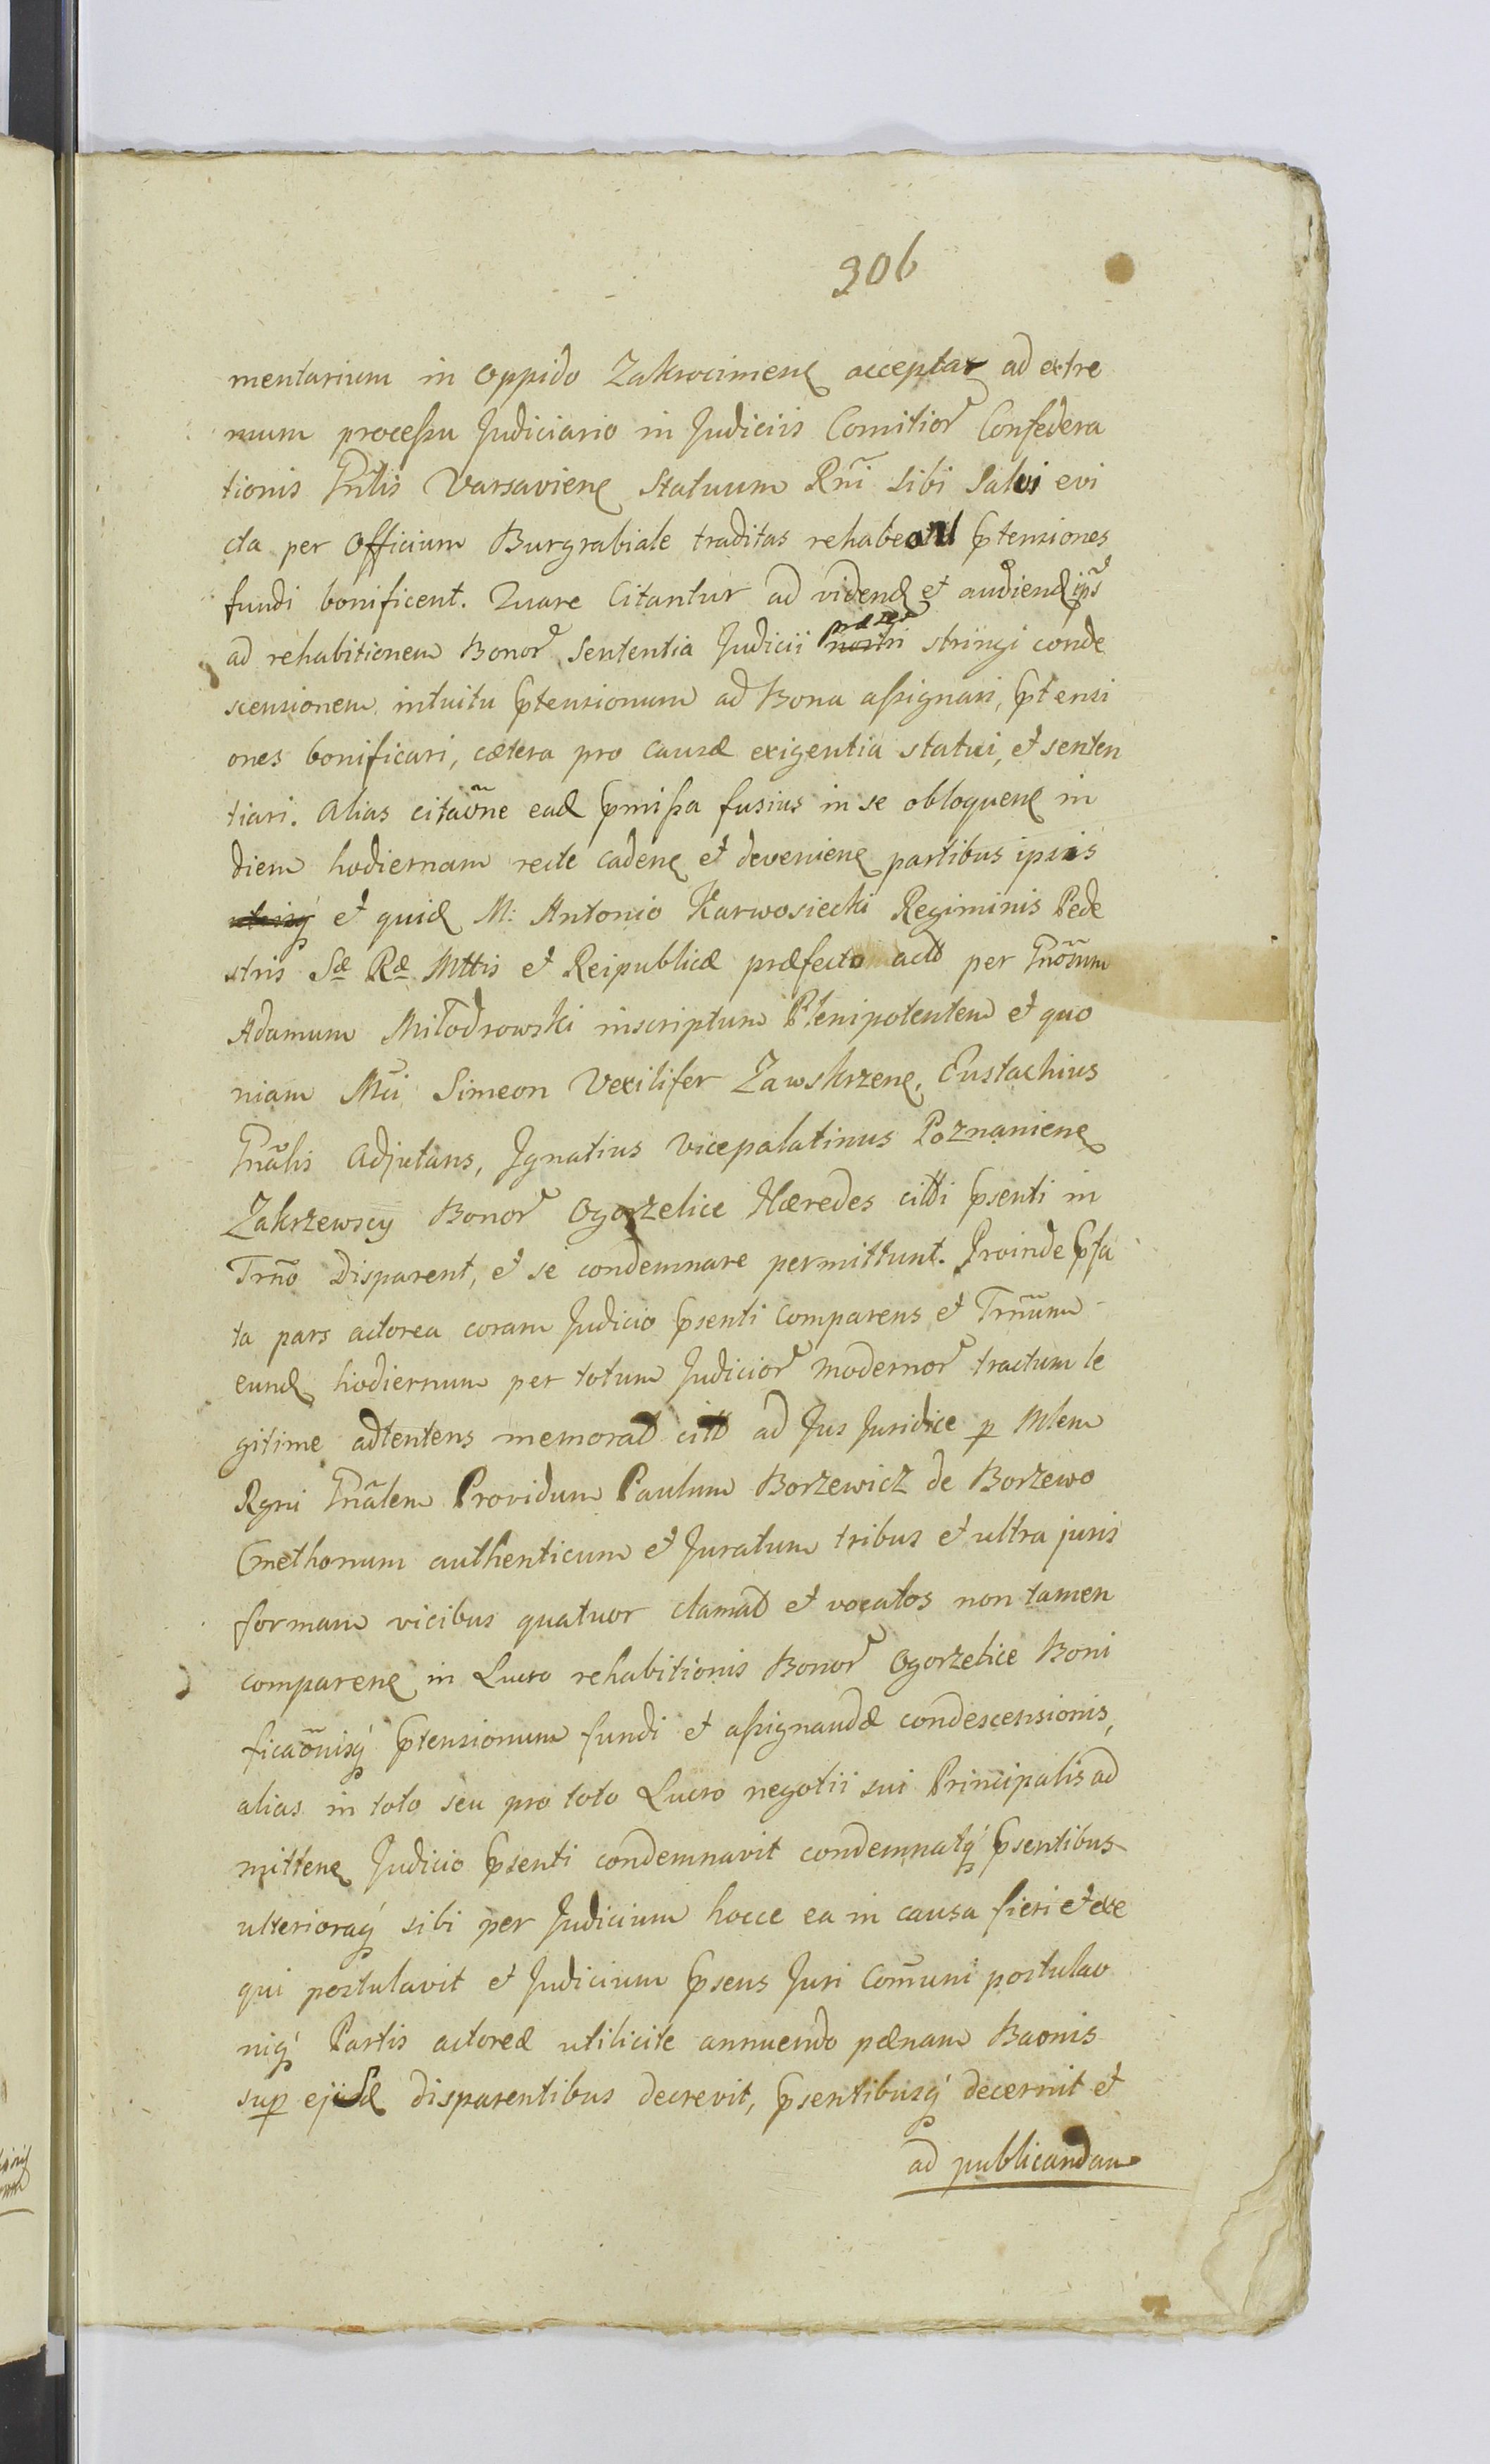 306
mentarium in oppido Zakrocimens acceptas ad extre
mum processu Judiciario in Judiciis Comitior Confedera
tionis Gnlis Varsaviens Statuum Rni sibi salvi evi
cta per Officium Burgrabiale traditas rehabeant ptensiones
fundi bonificent. Quare Citantur ad videnđ et audienđ ips
ad rehabitionem Bonor Sententia Judicii præsen stringi conde
scensionem intuitu ptensionum ad Bona assignari, ptensi
ones bonificari, cætera pro causæ exigentia statui, et senten
tiari. Alias citaõne eađ pmissa fusius in se obloquens in
diem hodiernam recte cadens et deveniens partibus ipsis
et quiđ M: Antonio Karwosiecki Regiminis Pede
stris Sæ Ræ Mttis et Reipublicæ præfecto actđ per Gnosum
Adamum Miłodrowski inscriptum Plenipotentem et quo
niam Mci Simeon Vexilifer Zawskrzens, Eustachius
Gnãlis Adjutans, Ignatius Vicepalatinus Poznaniens
Zakrzewscy Bonor Ogorzelice Hæredes citti psenti in
Trño Disparent, et se condemnare permittunt. Proinde pfa
ta pars actorea coram Judicio psenti comparens et Trñum
eunđ hodiernum per totum Judicior modernor tractum le
gitime adtentens memorađ citđ ad Jus Juridice p Mlem
Rgni Gnãlem Providum Paulum Borzewicz de Borzewo
Cmethonum authenticum et Juratum tribus et ultra juris
formam vicibus quatuor clamađ et vocatos non tamen
comparens in Lucro rehabitionis Bonor Ogorzelice Boni
ficaõnisq ptensionum fundi et assignandæ condescensionis,
alias in toto seu pro toto Lucro negotii sui Principalis ad
mittens Judicio psenti condemnavit condemnatq psentibus
ulterioraq sibi per Judicium hocce ea in causa fieri et exe
qui postulavit et Judicium psens Juri Com̃uni postulao
niq Partis actoreæ utilicite annuendo pænam Baonis
sup ejusđ disparentibus decrevit, psentibusq decernit et
ad publicandam